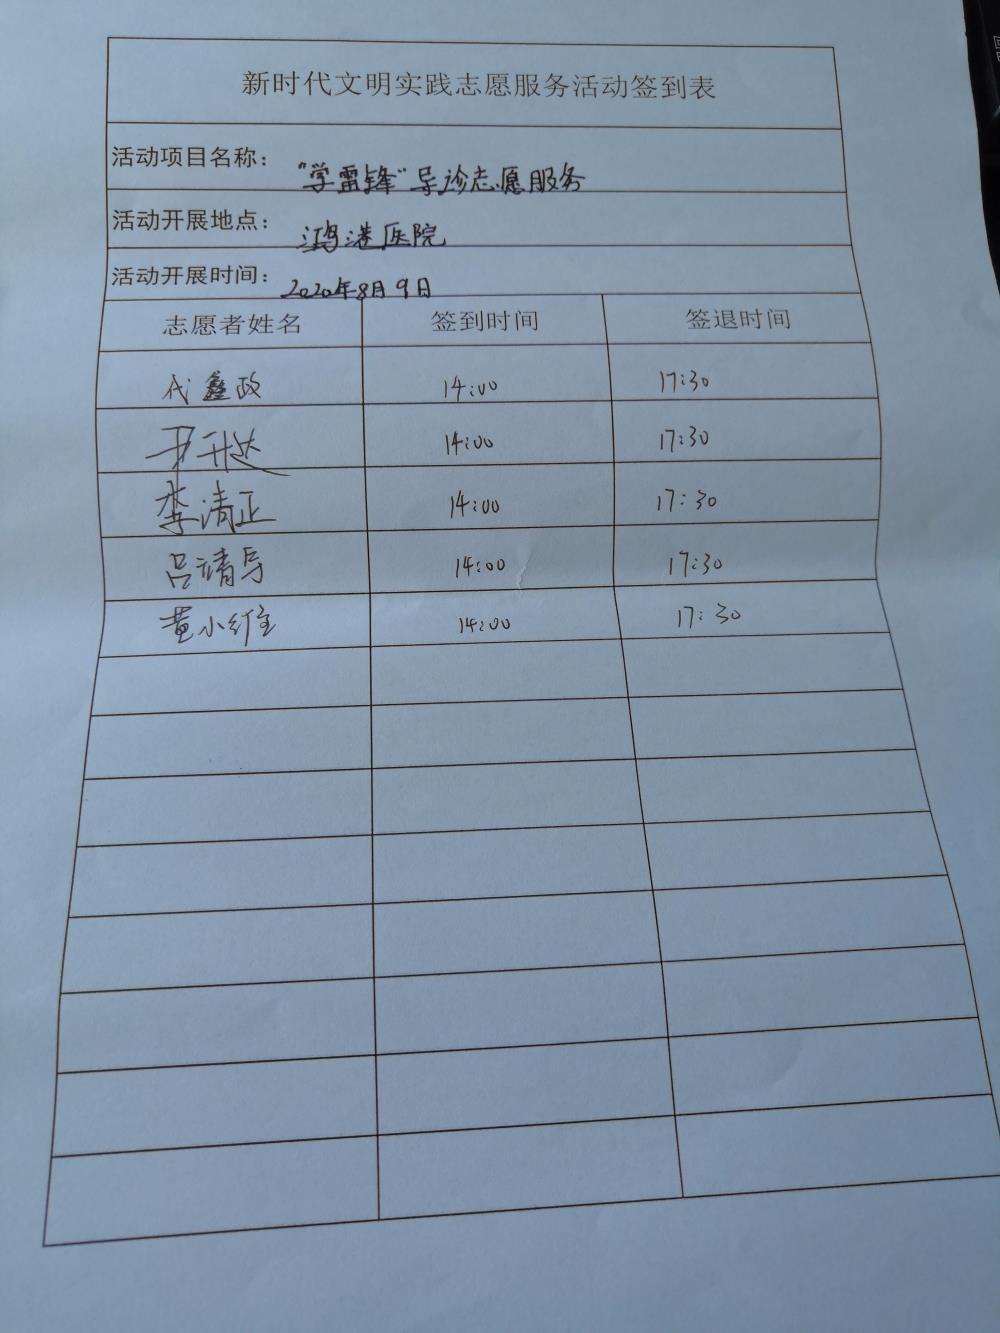 新时代文明实践志愿服务活动签到表
活动项目名称： “学雷锋”导诊志愿服务
活动开展地点： 鸿港医院
活动开展时间： 2020年8月9日
志愿者姓名 签到时间 签退时间
代鑫政 14:00 17:30
尹升达 14:00 17:30
李清正 14:00 17:30
吕靖导 14:00 17:30
黄小维 14:00 17:30